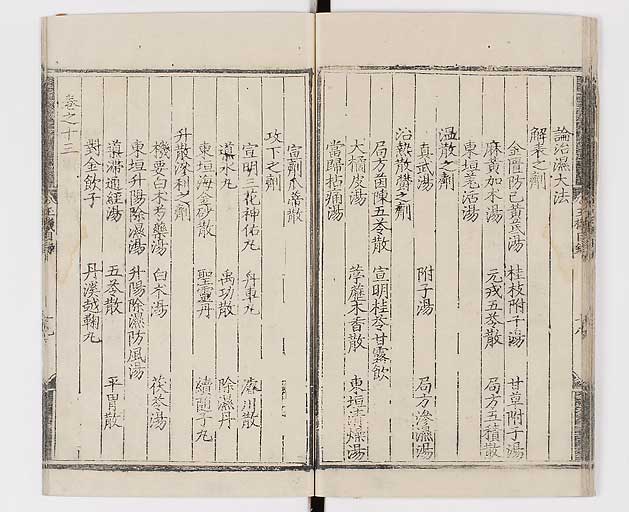 論治濕大法
解表之劑
金匱防己黃芪湯 桂枝附子湯 甘草附子湯
麻黃加朮湯 元戎五苓散 局方五積散
東垣羌活湯
溫散之劑
真武湯 附子湯 局方滲濕湯
治熱散鬱之劑
局方茵陳五苓散 宣明桂苓甘露飲
大橘皮湯 葶藶木香散 東垣清燥湯
當歸拈痛湯
宣劑瓜蔕散
攻下之劑
宣明三花神佑丸 舟車丸 濬川散
導水丸 禹功散 除濕丹
東垣海金砂散 聖靈丹 續隨子丸
升散滲利之劑
機要白朮芍藥湯 白朮湯 茯苓湯
東垣升陽除濕湯 升陽除濕防風湯
導滯通經湯 五苓散 平胃散
對金飲子 丹溪越鞠丸
卷之十三